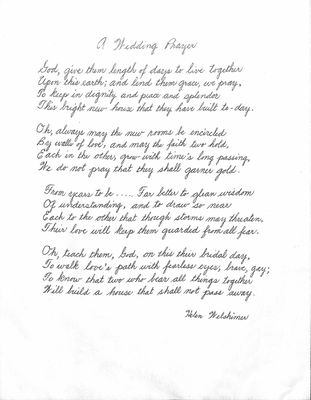 A Wedding Prayer
God, give them length of days to live together
Upon this earth; and lend them grace, we pray,
To keep in dignity and peace and splendor
This bright new house that they have built to-day.
Oh, always may the new rooms be encircled
By walls of love, and may the faith two hold,
Each in the other, grow with time's long passing,
We do not pray that they shall garner gold.
From years to be..... Far better to glean wisdom
Of understanding, and to draw so near
Each to the other that though storms may threaten,
Their love will keep them guarded from all fear.
Oh, teach them, God, on this their bridal day,
To walk love's path with fearless eyes, brave, gay;
To know that two who bear all things together
Will build a house that shall not pass away.
Helen Welshimer